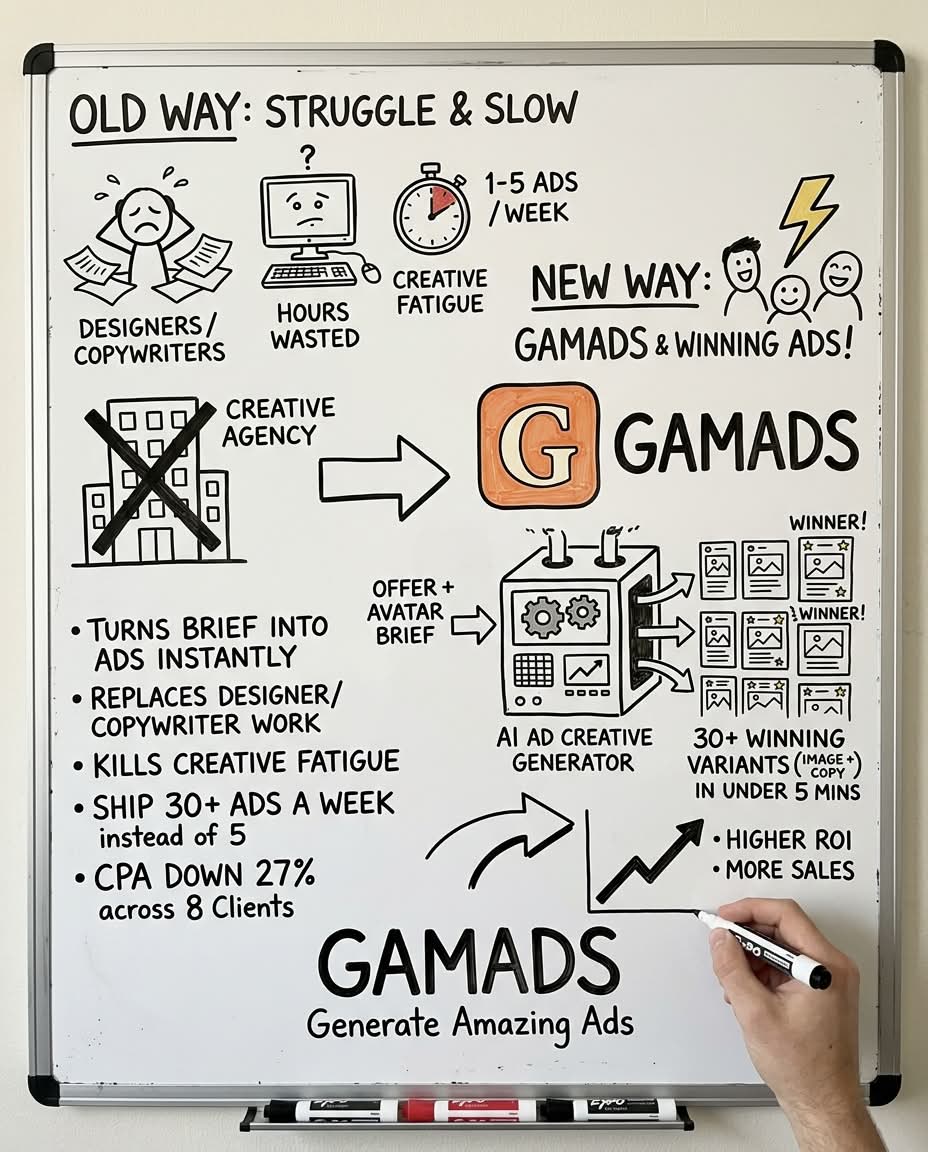 OLD WAY: STRUGGLE & SLOW
?
1-5 ADS
/WEEK
DESIGNERS/
COPYWRITERS
HOURS
WASTED
CREATIVE
FATIGUE
NEW WAY:
GAMADS & WINNING ADS!
CREATIVE
AGENCY
G
GAMADS
OFFER +
AVATAR
BRIEF
WINNER!
WINNER!
AI AD CREATIVE
GENERATOR
30+ WINNING
VARIANTS (IMAGE +
COPY)
IN UNDER 5 MINS
• TURNS BRIEF INTO
ADS INSTANTLY
• REPLACES DESIGNER/
COPYWRITER WORK
• KILLS CREATIVE FATIGUE
• SHIP 30+ ADS A WEEK
instead of 5
• CPA DOWN 27%
across 8 Clients
• HIGHER ROI
• MORE SALES
GAMADS
Generate Amazing Ads
EXPO